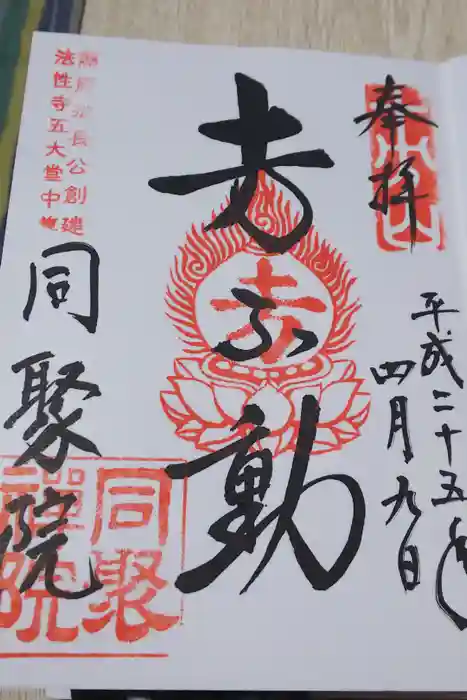 奉拝
平成二十五年
四月九日
不動
藤原道長公創建
法性寺五大堂中尊
同聚院
同聚
禪院